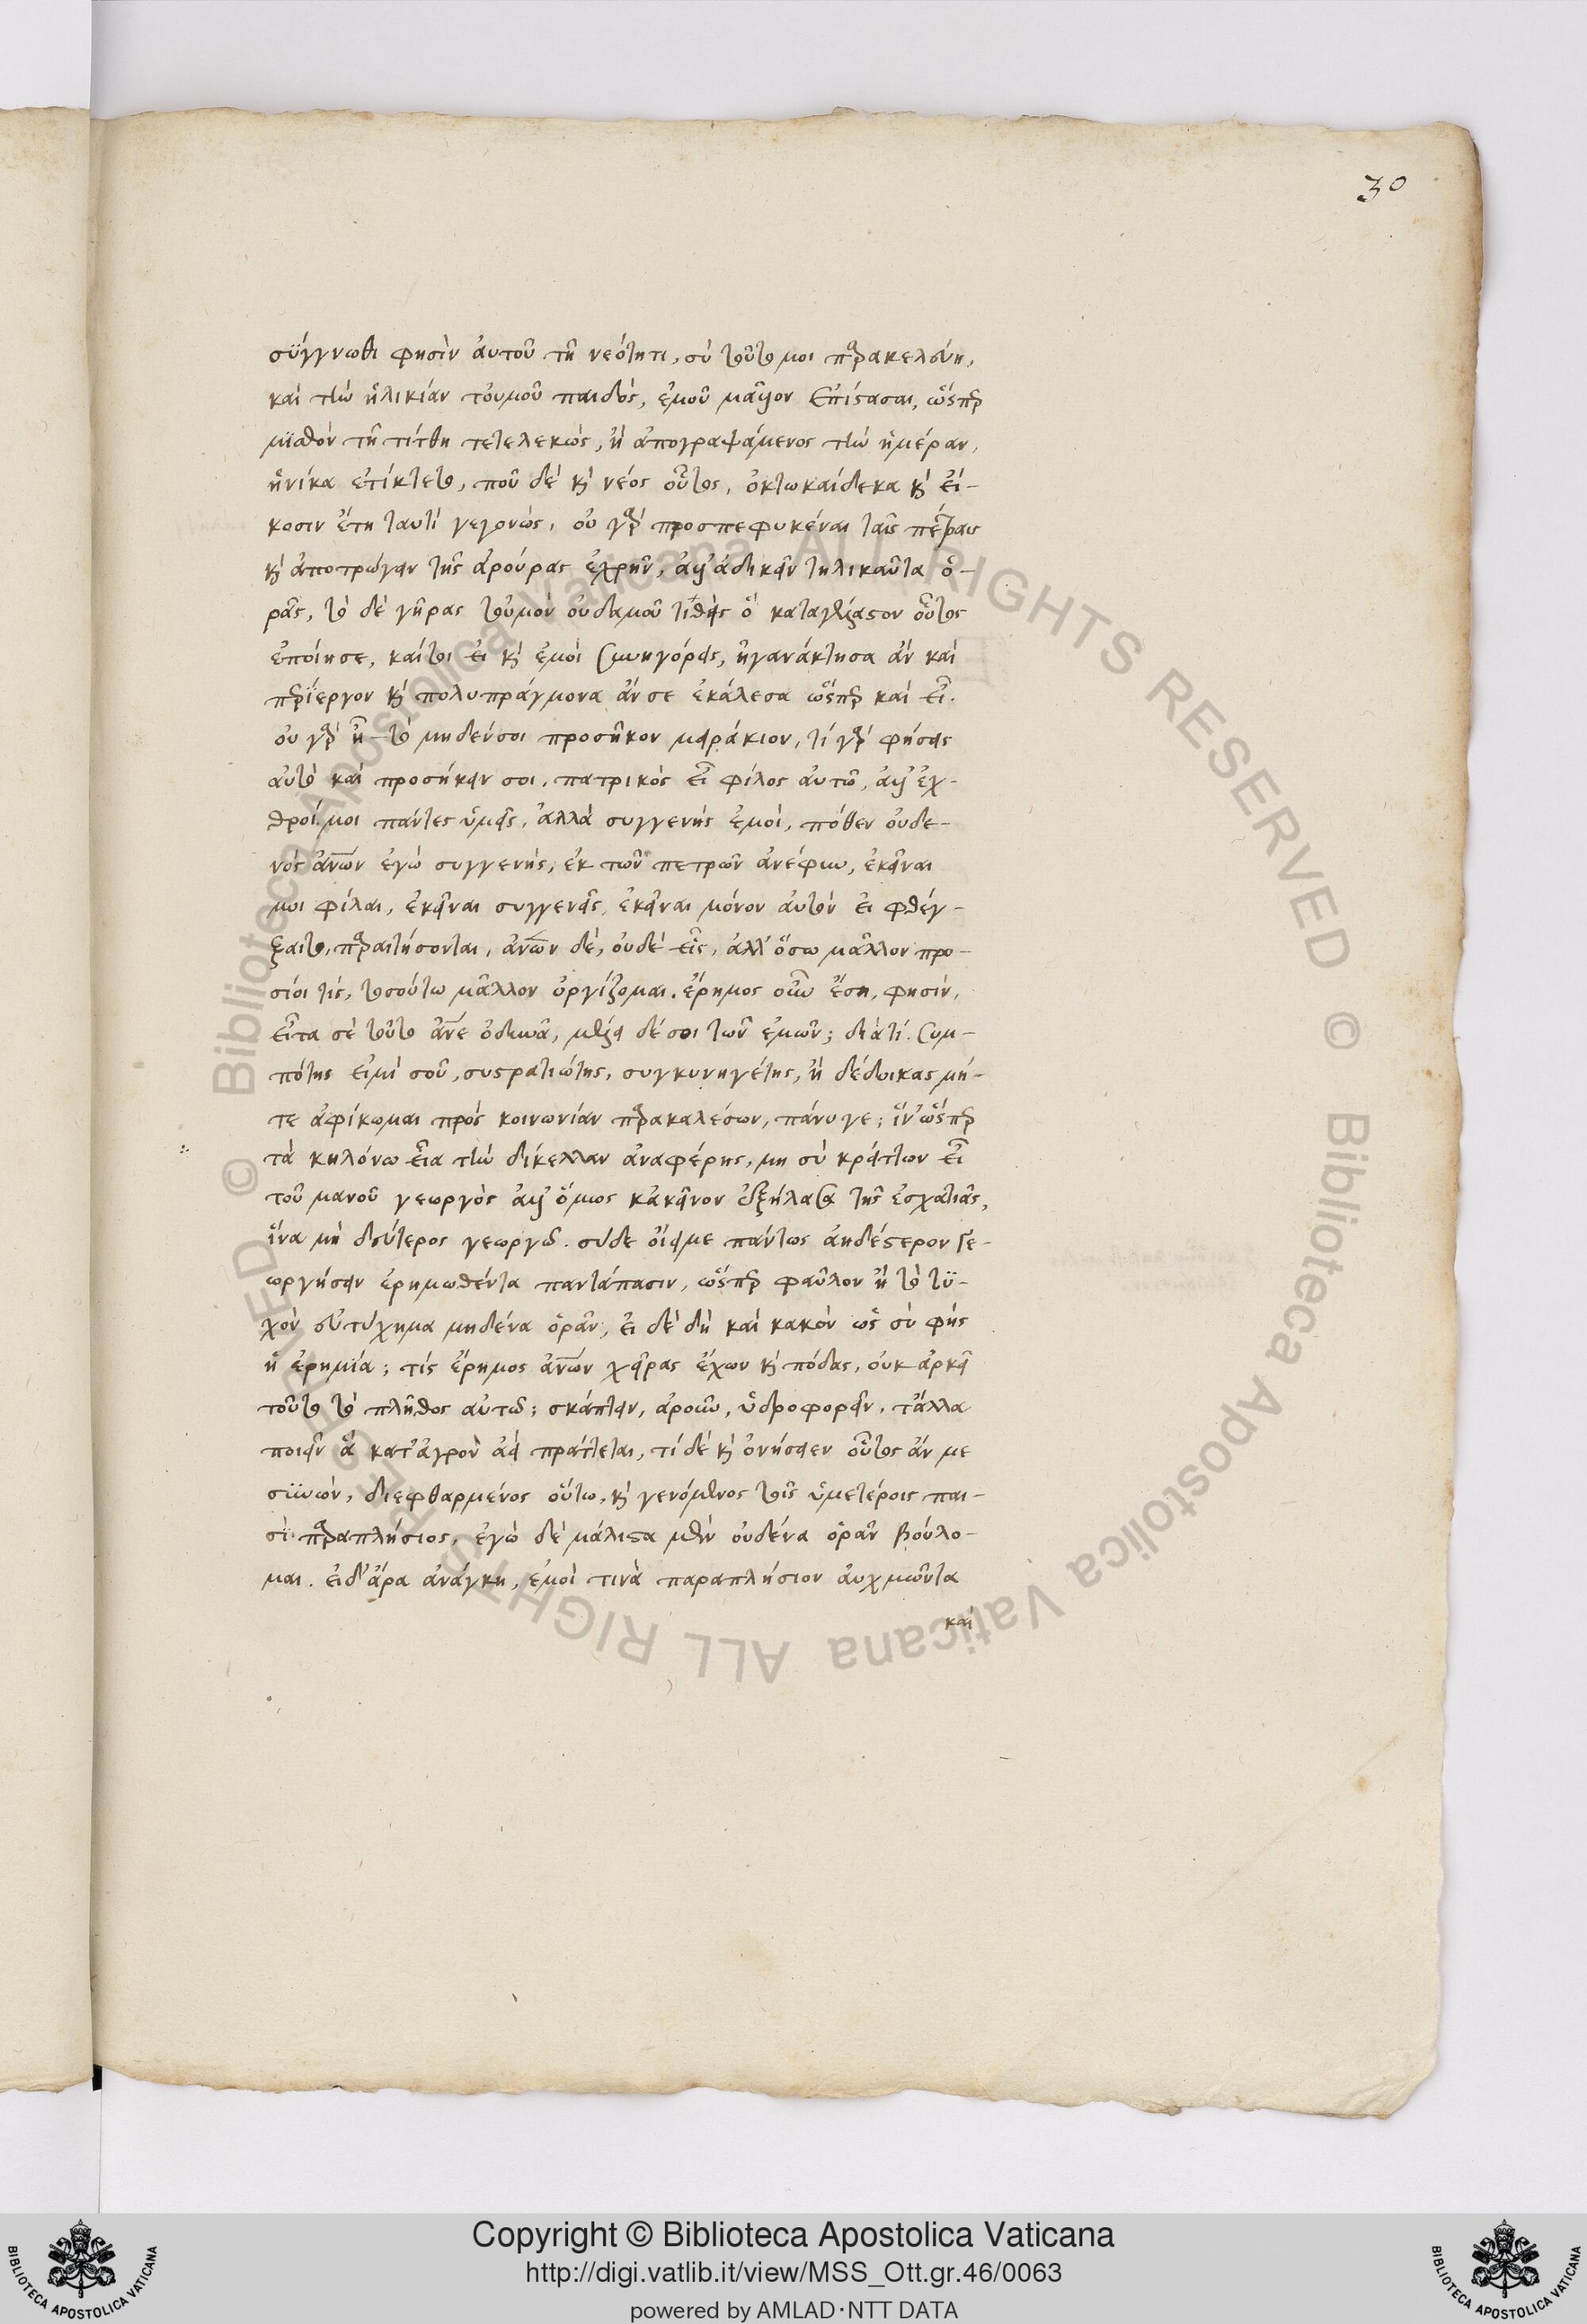 30
σύγγνωθι φησὶν αὐτοῦ τῆ νεότητι, σὺ τοῦτό μοι παρακελεύη,
καὶ τὴν ἡλικίαν τοὐμοῦ παιδὸς, ἐμοῦ μᾶλλον ἐπίστασαι, ὥσπερ
μισθὸν τῆ τίτθη τετελεκὼς, ἢ ἀπογραψάμενος τὴν ἡμέραν,
ἡνίκα ἐτίκτετο, ποῦ δὲ καὶ νέος οὗτος, ὀκτωκαίδεκα καὶ εἴ-
κοσιν ἔτη ταυτὶ γεγονὼς, οὐ γὰρ προσπεφυκέναι ταῖς πέτραις
καὶ ἀποτρώγειν τῆς ἀρούρας ἐχρῆν, ἀλλ' ἀδικεῖν τηλικαῦτα ὁ-
ρᾶς, τὸ δὲ γῆρας τοὐμὸν οὐδαμοῦ τίθης ὃ καταγέλαστον οὗτος
ἐποίησε, καίτοι εἰ καὶ ἐμοὶ συνηγόρεις, ἠγανάκτησα ἂν καὶ
περίεργον καὶ πολυπράγμονα ἄν σε ἐκάλεσα ὥσπερ καὶ εἶ.
οὐ γὰρ ἦν τὸ μηδέν σοι προσῆκον μειράκιον, τί γὰρ φήσεις
αὐτὸ καὶ προσήκειν σοι, πατρικὸς εἶ φίλος αὐτῶ, ἀλλ' ἐχ-
θροί μοι πάντες ὑμεῖς, ἀλλὰ συγγενὴς ἐμοὶ, πόθεν οὐδε-
νὸς ἀνων ἐγὼ συγγενὴς, ἐκ τῶν πετρῶν ἀνέφυν, ἐκεῖναι
μοι φίλαι, ἐκεῖναι συγγενεῖς, ἐκεῖναι μόνον αὐτὸν εἰ φθέγ-
ξαιτο, παραιτήσονται, ἀνων δὲ, οὐδὲ εἷς, ἀλλ' ὅσω μᾶλλον προ-
σίοι τὶς, τοσούτω μᾶλλον ὀργίζομαι. ἔρημος οὖν ἔση, φησὶν,
εἶτα σὲ τοῦτο ἄνε ὀδυνᾶ, μέλει δέ σοι τῶν ἐμῶν; διατί. συμ-
πότης εἰμὶ σοῦ, συστρατιώτης, συγκυνηγέτης, ἢ δέδοικας μή-
τε ἀφίκωμαι πρὸς κοινωνίαν παρακαλέσων, πάνυ γε; ἵν' ὥσπερ
τὰ κηλόνω εἶτα τὴν δίκελλαν ἀναφέρης, μὴ σὺ κρείττων εἶ
τοῦ μανοῦ γεωργὸς ἀλλ' ὅμως κἀκεῖνον ἐξήλασα τῆς ἐσχατιᾶς,
ἵνα μὴ δεύτερος γεωργῶ. σὺ δὲ οἴει με πάντως ἀηδέστερον γε-
ωργήσειν ἐρημωθέντα παντάπασιν, ὥσπερ φαῦλον ἢ τὸ τύ-
χὸν εὐτύχημα μηδένα ὁρᾶν, εἰ δὲ δὴ καὶ κακὸν ὡς σὺ φὴς
ἡ ἐρημία; τίς ἔρημος ἀνων χεῖρας ἔχων καὶ πόδας, οὐκ ἀρκεῖ
τοῦτο τὸ πλῆθος αὐτῶ; σκάπτειν, ἀροῦν, ὑδροφορεῖν, τἄλλα
ποιεῖν ἃ κατ' ἀγρὸν ἀεὶ πράττεται, τί δὲ καὶ ὀνήσειεν οὗτος ἄν με
συνὼν, διεφθαρμένος οὕτω, καὶ γενόμενος τοῖς ὑμετέροις παι-
σὶ παραπλήσιος, ἐγὼ δὲ μάλιστα μὲν οὐδένα ὁρᾶν βούλο-
μαι. εἰ δ' ἄρα ἀνάγκη, ἐμοὶ τινὰ παραπλήσιον αὐχμῶντα
καὶ
Copyright © Biblioteca Apostolica Vaticana
http://digi.vatlib.it/view/MSS_Ott.gr.46/0063
powered by AMLAD·NTT DATA